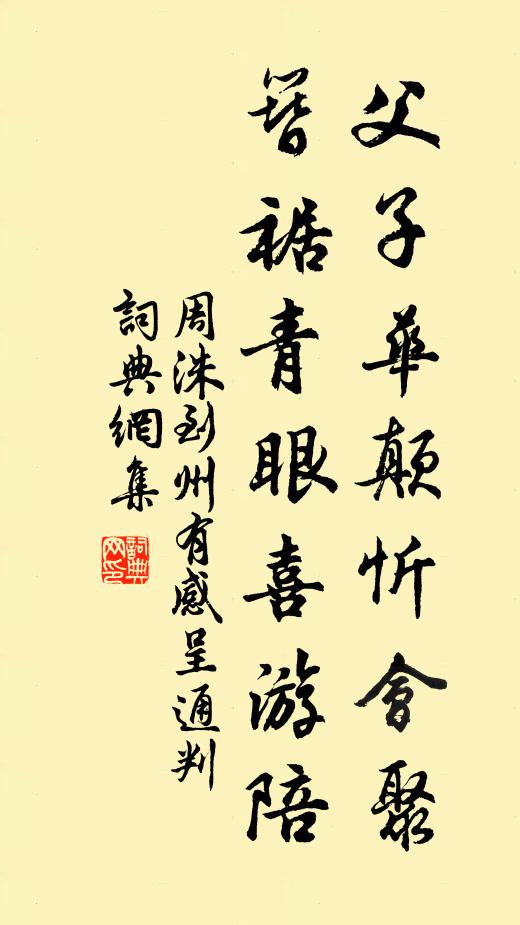 父子華顛忻會聚
簪裾青眼喜游陪
周洙到州有感呈通判
詞典網集
詞典網印